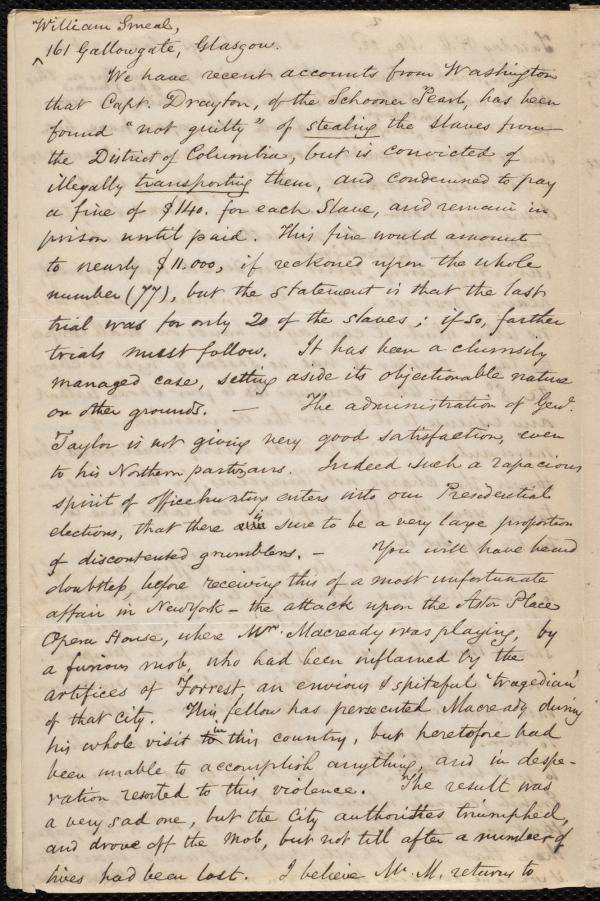 William Smeal,
^ 161 Gallowgate, Glasgow.
We have recent accounts from Washington
that Capt. Drayton, of the Schooner Pearl, has been
found "not guilty" of stealing the slaves from
the District of Columbia, but is convicted of
illegally transporting them, and condemned to pay
a fine of $140. for each Slave, and remain in
prison until paid. This fine would amount
to nearly $11.000, if reckoned upon the whole
number (77), but the statement is that the last
trial was for only 20 of the slaves; if so, farther
trials must follow. It has been a clumsily
managed case, setting aside its objectionable nature
on other grounds. — The administration of Genl.
Taylor is not giving very good satisfaction, even
to his Northern partizans. Indeed such a rapacious
spirit of officehunting enters into our Presidential
elections, that there is sure to be a very large proportion
of discontented grumblers. — You will have heard
doubtless, before receiving this of a most unfortunate
affair in New York – the attack upon the Astor Place
Opera House, where Wm. Macready was playing, by
a furious mob, who had been inflamed by the
artifices of Forrest, an envious & spiteful 'tragedian'
of that city. This fellow has persecuted Macready during
his whole visit to in this country, but heretofore had
been unable to accomplish anything, and in despe-
ration resorted to this violence. The result was
a very sad one, but the City authorities triumphed,
and drove off the mob, but not till after a number of
lives had been lost. I believe Mr. M. returns to